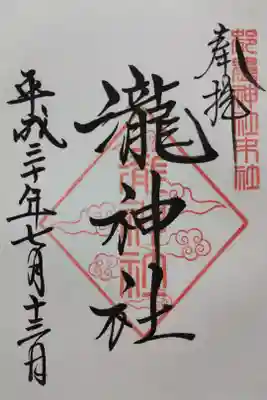 奉拝
瀧神社
平成三十年七月十三日
瀧神社